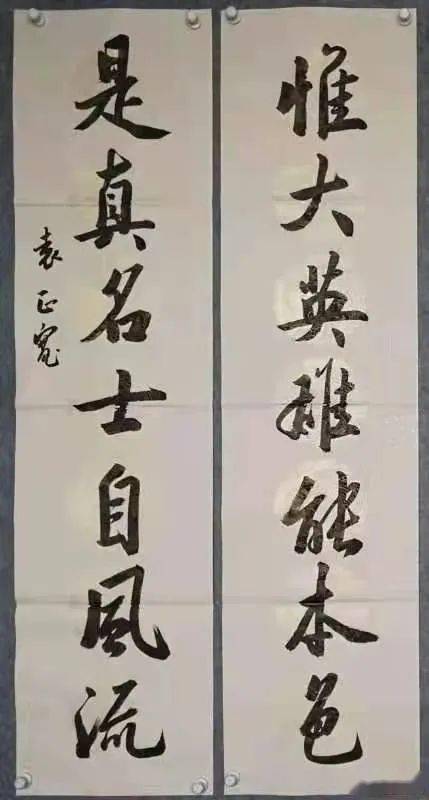 惟大英雄能本色
是真名士自風流
袁正寬